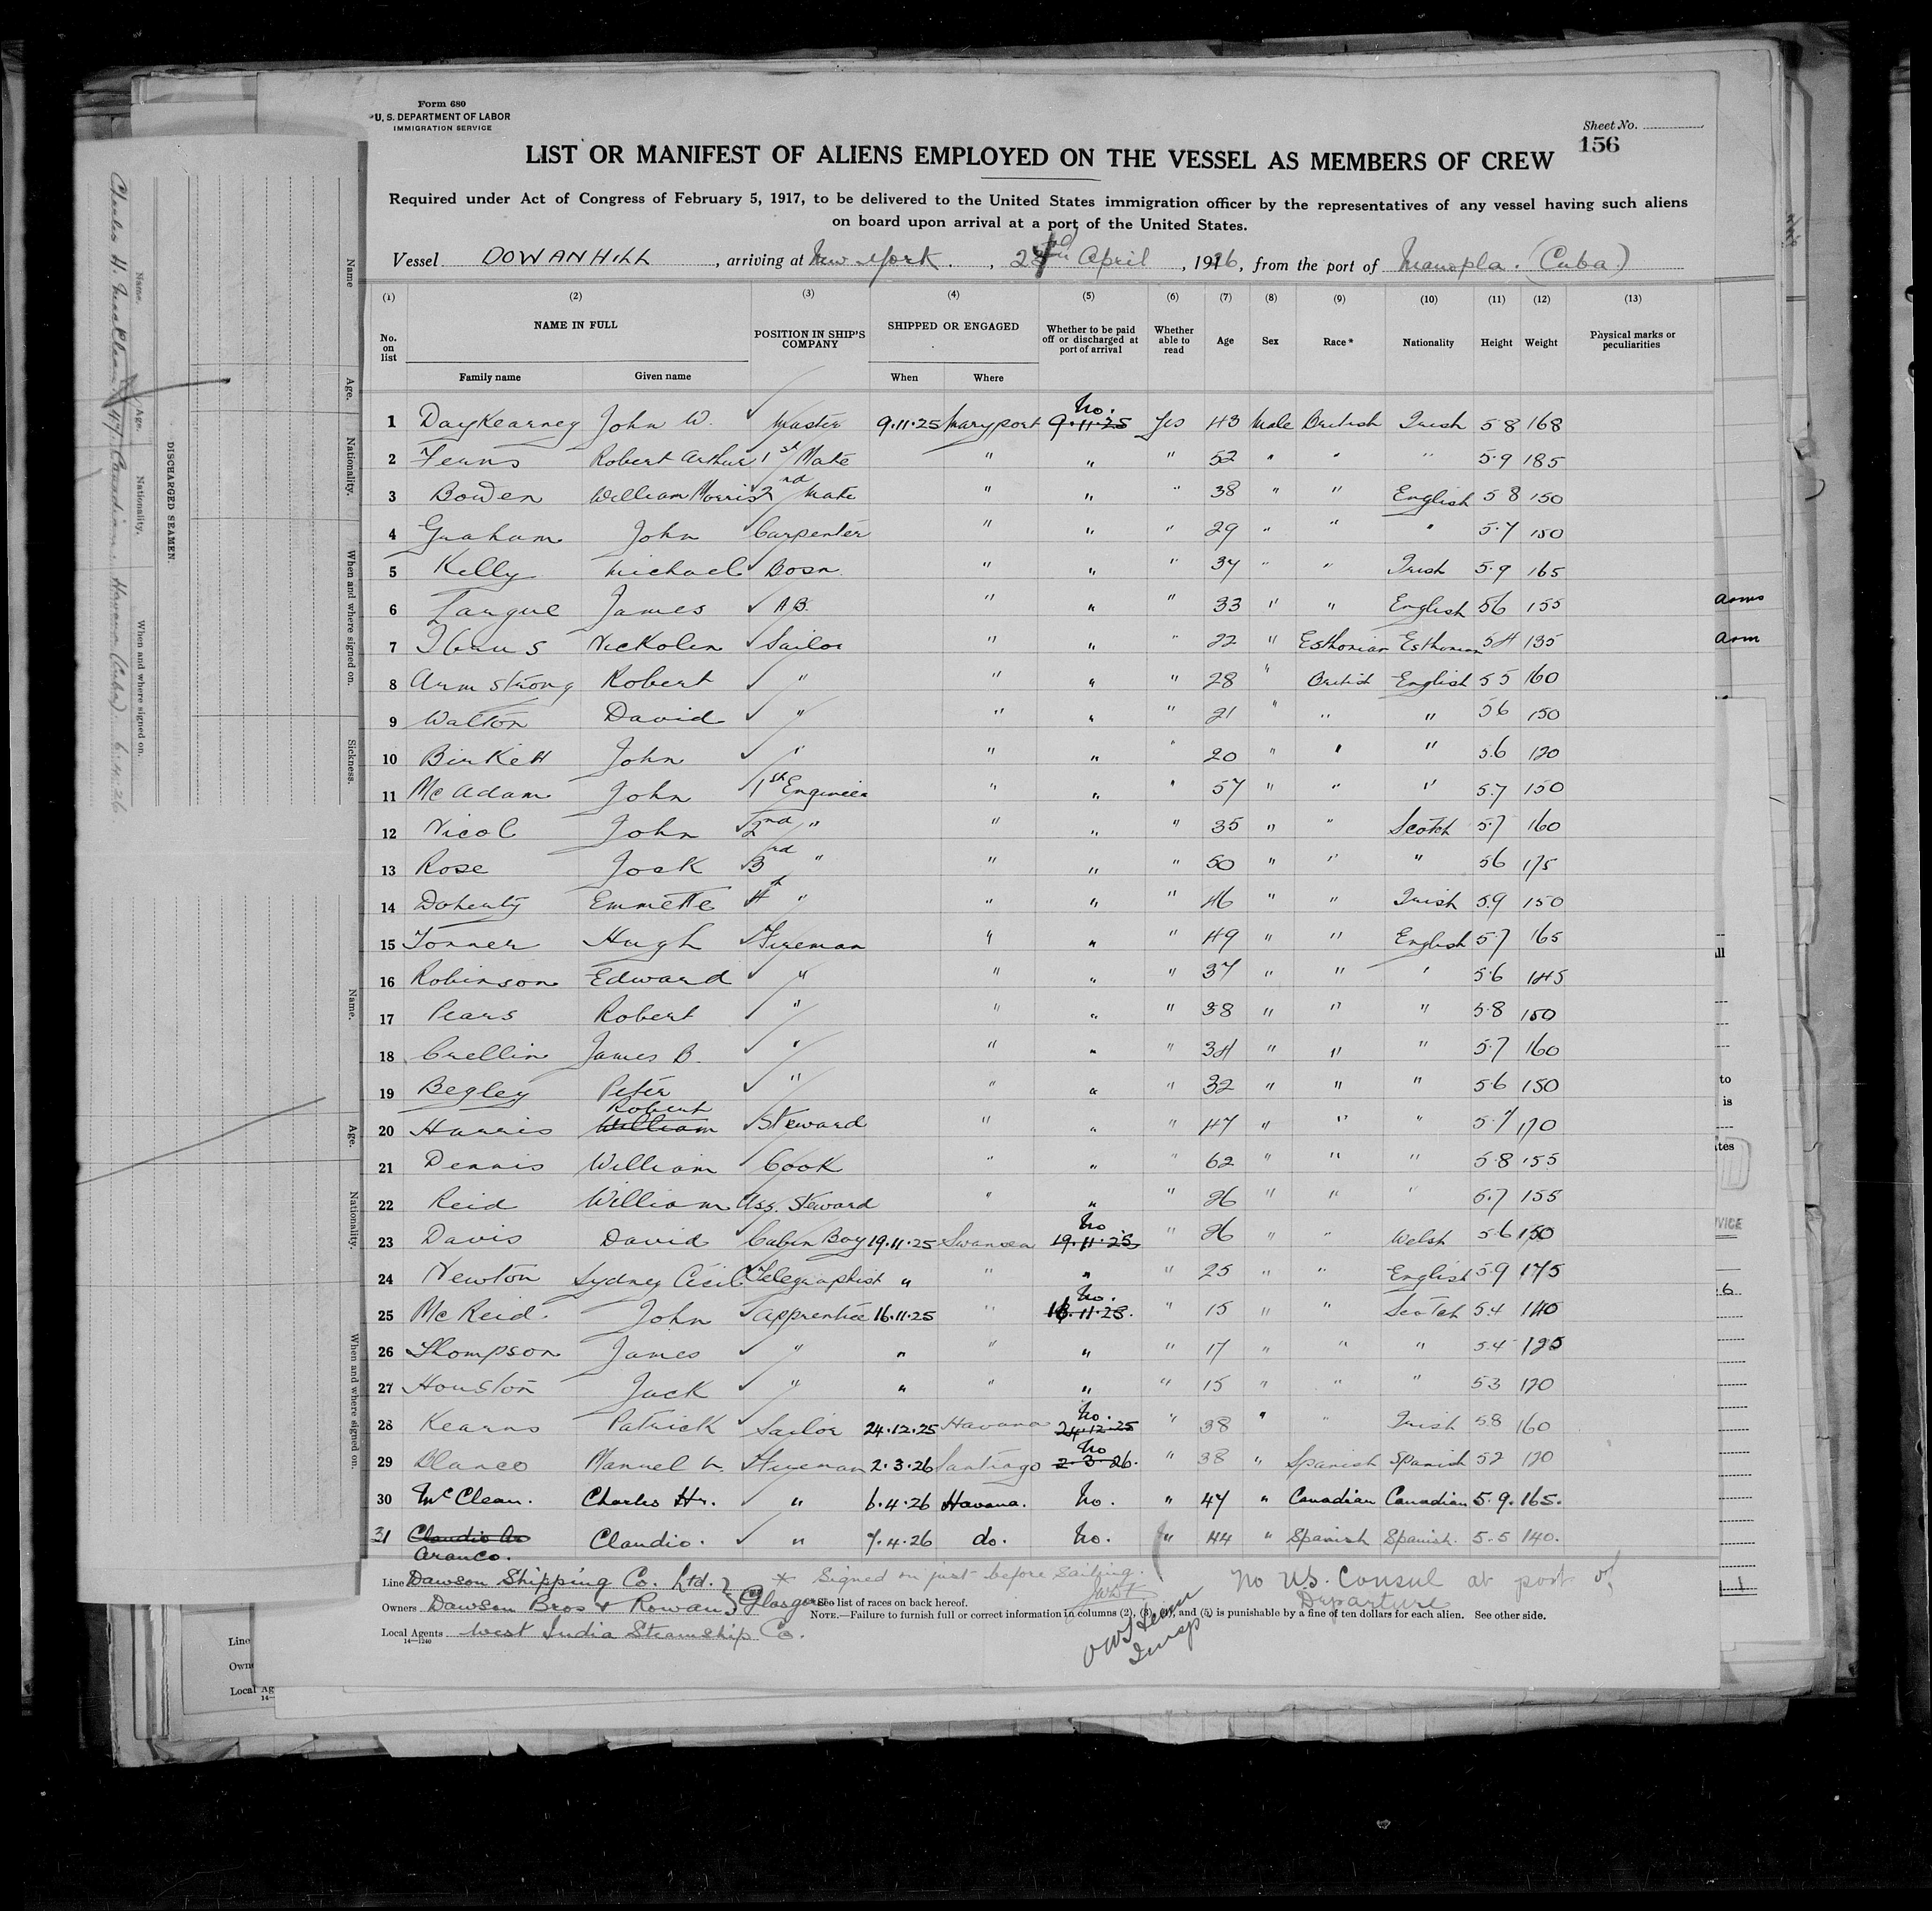 Form 680
U. S. DEPARTMENT OF LABOR
IMMIGRATION SERVICE
Sheet No.
156
LIST OR MANIFEST OF ALIENS EMPLOYED ON THE VESSEL AS MEMBERS OF CREW
Required under Act of Congress of February 5, 1917, to be delivered to the United States immigration officer by the representatives of any vessel having such aliens
on board upon arrival at a port of the United States.
Vessel DOWANHILL, arriving at New York, April, 1926, from the port of Manopla. (Cuba)
(1) (2) (3) (4) (5) (6) (7) (8) (9) (10) (11) (12) (13)
No. on list NAME IN FULL POSITION IN SHIP'S COMPANY SHIPPED OR ENGAGED Whether to be paid off or discharged at port of arrival Whether able to read Age Sex Race* Nationality Height Weight Physical marks or peculiarities
Family name Given name When Where
1 DayKearney John W. Master 9.11.25 Maryport No. 9.11.25 Yes 43 Male British Irish 5 8 168
2 Ferns Robert Arthur 1st Mate " " " 52 " " " 5.9 185
3 Bowen William Morris 2nd Mate " " " 38 " " English 5 8 150
4 Graham John Carpenter " " " 29 " " " 5.7 150
5 Kelly Michael Bosn " " " 37 " " Irish 5.9 165
6 James A.B. " " " 33 " " English 5 6 155
7 Nickolen Sailor " " " 22 " Esthonian Esthonian 5 4 135
8 Armstrong Robert " " " " 28 " British English 5 5 160
9 Walton David " " " " 21 " " " 5 6 150
10 Birkett John " " " " 20 " " " 5.6 120
11 McAdam John 1st Engineer " " " 57 " " " 5.7 150
12 Nicol John 2nd " " " " 35 " " Scotch 5.7 160
13 Rose Jock 3rd " " " " 50 " " " 5 6 175
14 Doherty Emmette 4th " " " " 46 " " Irish 5.9 150
15 Tonner Hugh Fireman " " " 49 " " English 5.7 165
16 Robinson Edward " " " " 37 " " " 5.6 145
17 Pears Robert " " " " 38 " " " 5.8 150
18 Crellin James B. " " " " 34 " " " 5.7 160
19 Begley Peter " " " " 32 " " " 5.6 150
20 Harris Robert William Steward " " " 47 " " " 5.7 170
21 Dennis William Cook " " " 62 " " " 5.8 155
22 Reid William Ass. Steward " " " 26 " " " 5.7 155
23 Davis David Cabin Boy 19.11.25 Swansea No 19.11.25 " 26 " " Welsh 5.6 150
24 Newton Sydney Cecil Telegraphist " " " " 25 " " English 5.9 175
25 McReid John Apprentice 16.11.25 " No. 16.11.25. " 15 " " Scotch 5.4 140
26 Thompson James " " " " " 17 " " " 5.4 125
27 Houston Jack " " " " " 15 " " " 5 3 120
28 Kearns Patrick Sailor 24.12.25 Havana No. 24.12.25 " 38 " " Irish 5.8 160
29 Blanco Manuel Fireman 2.3.26 Santiago No 2.3.26. " 38 " Spanish Spanish 5 2 120
30 McClean. Charles Hy. " 6.4.26 Havana. No. " 47 " Canadian Canadian 5.9. 165.
31 Claudio Ar Aranco. Claudio. " 7.4.26 do. No. " 44 " Spanish Spanish. 5.5 140.
Line Dawson Shipping Co. Ltd. * Signed on just before sailing. No U.S. Consul at port of Departure
Owners Dawson Bros & Rowan Glasgow
* See list of races on back hereof.
NOTE.—Failure to furnish full or correct information in columns (2), (3), (4), and (5) is punishable by a fine of ten dollars for each alien. See other side.
Local Agents West India Steamship Co.
14—1240
Insp
DISCHARGED SEAMEN.
Name. Age. Nationality. When and where signed on.
Charles H. MacClean 47 Canadian Havana (Cuba) 6.4.26
Name Age. Nationality. When and where signed on. Sickness.
Name. Age. Nationality. When and where signed on.
arms
arm
to
is
Line
Local Ag
14—